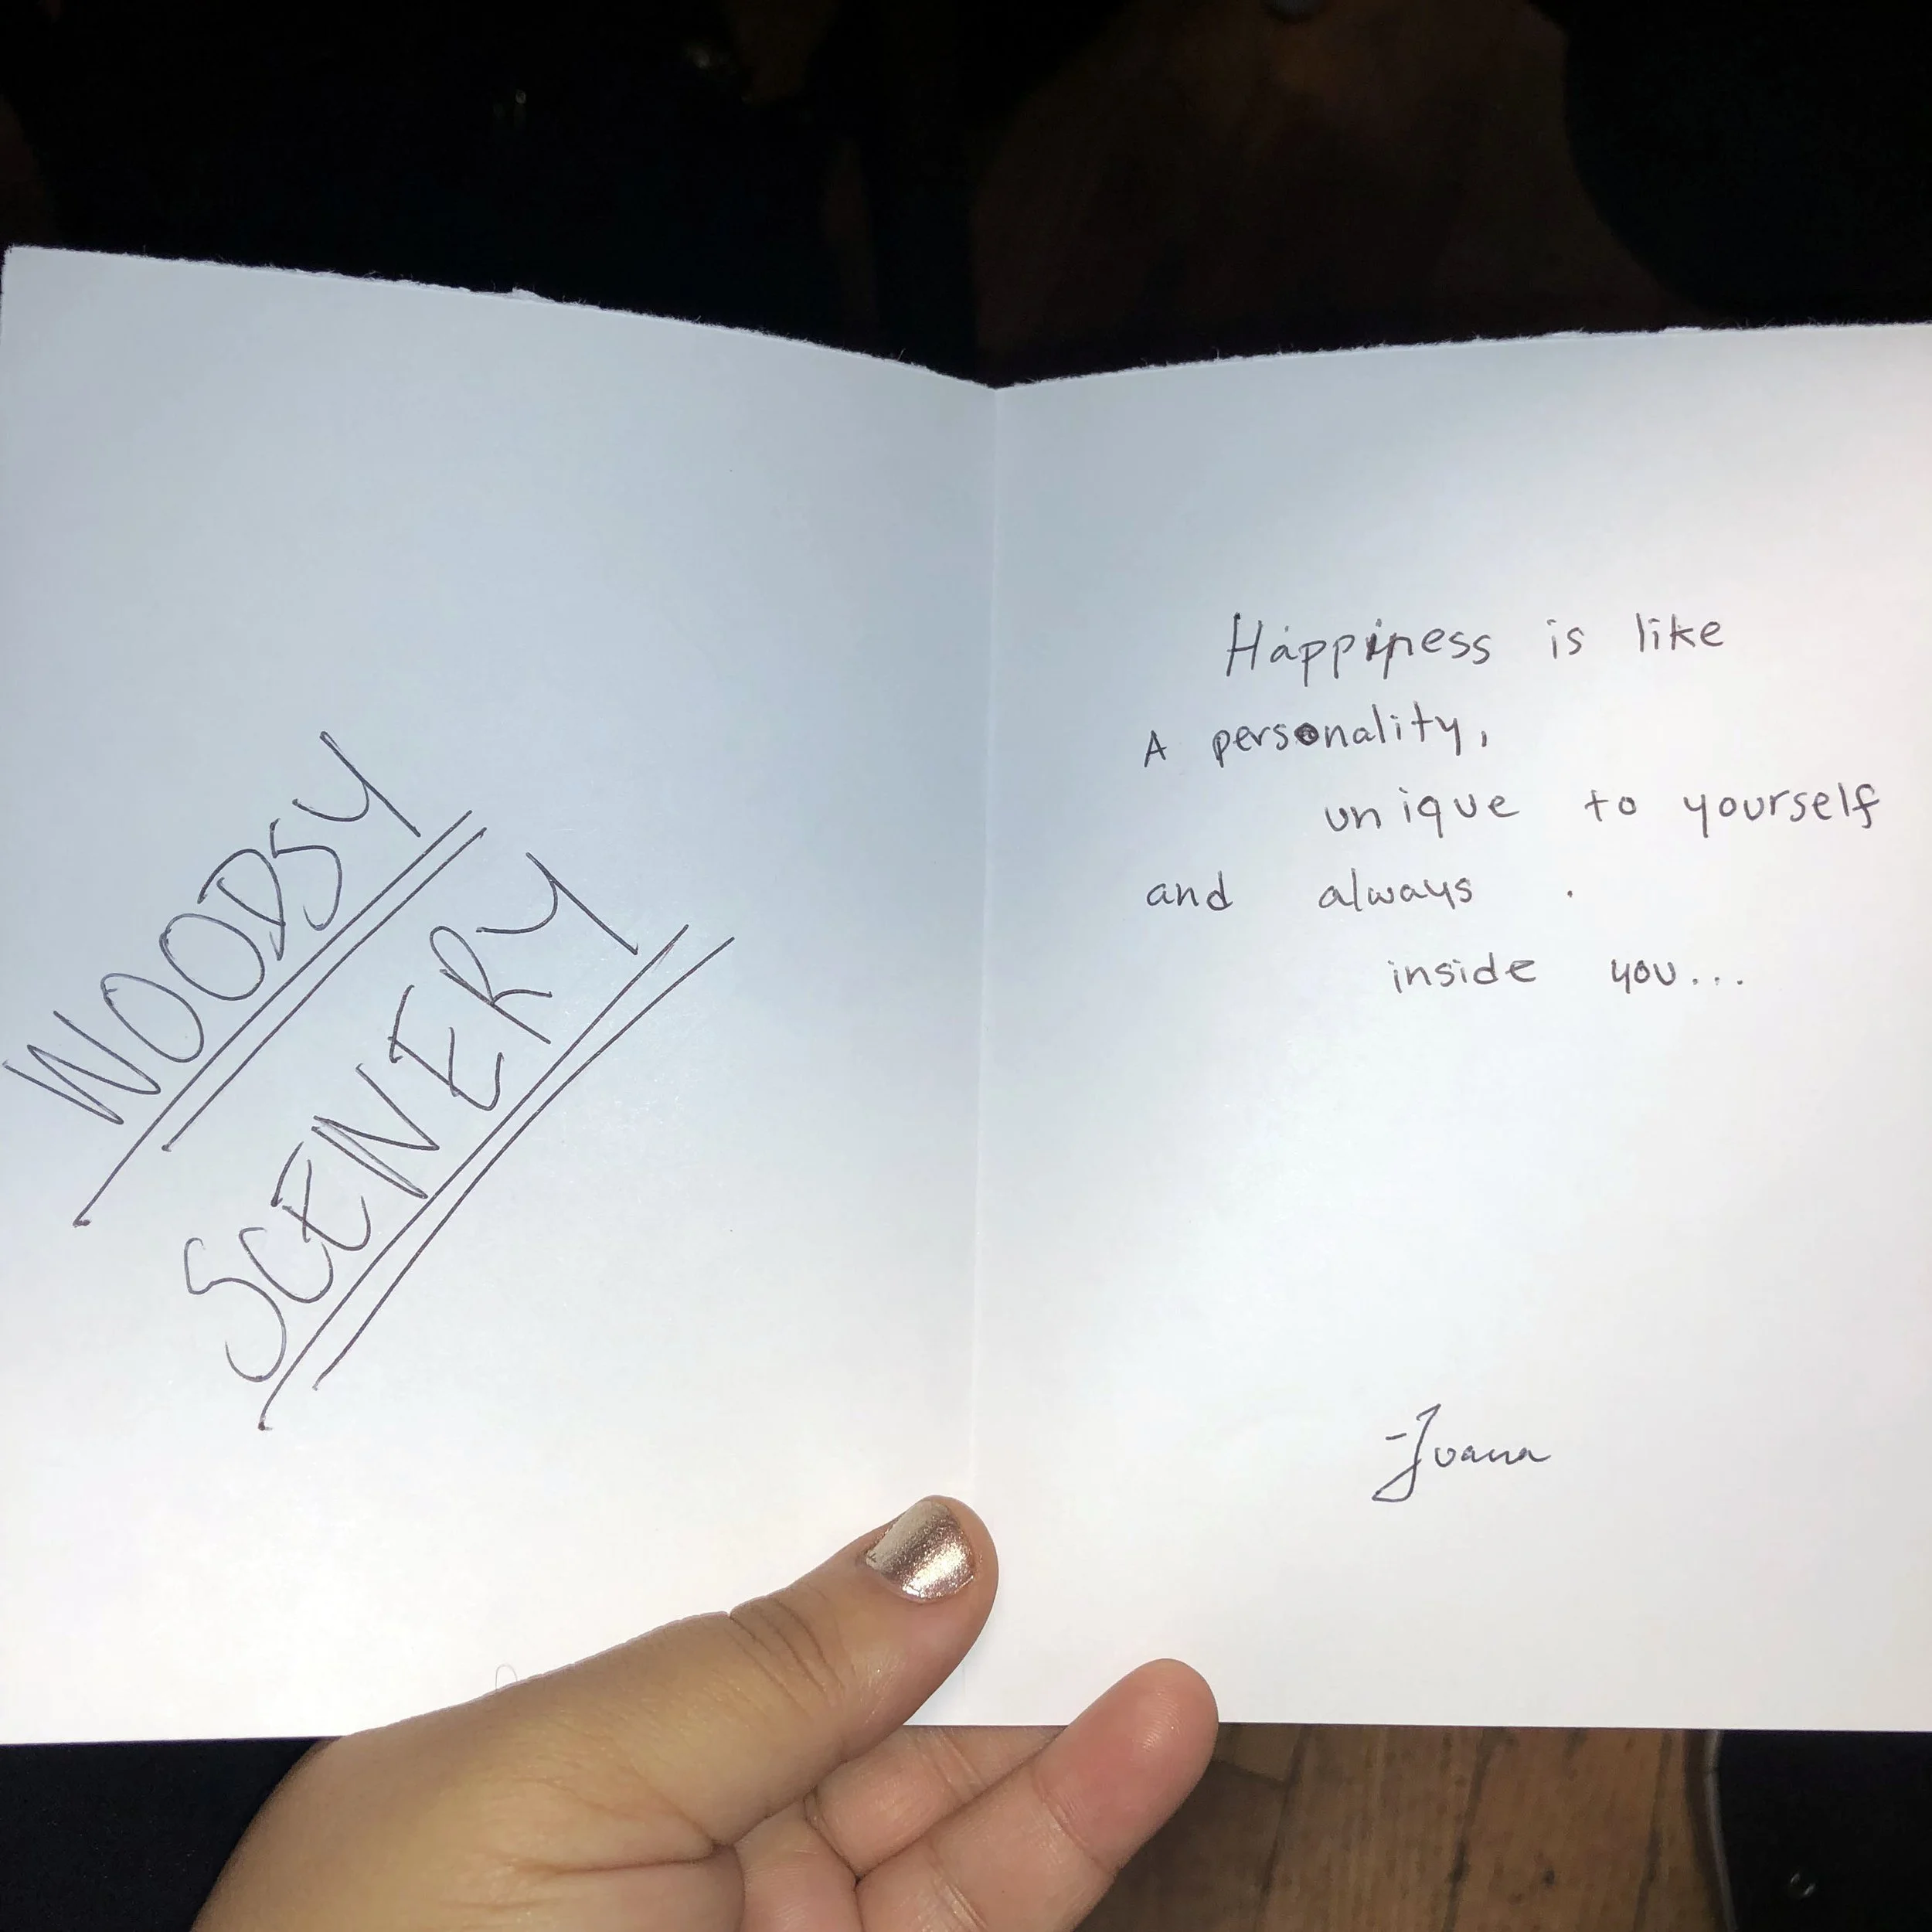 WOODSY
SCENERY
Happiness is like
A personality,
unique to yourself
and always
inside you...
-Joana